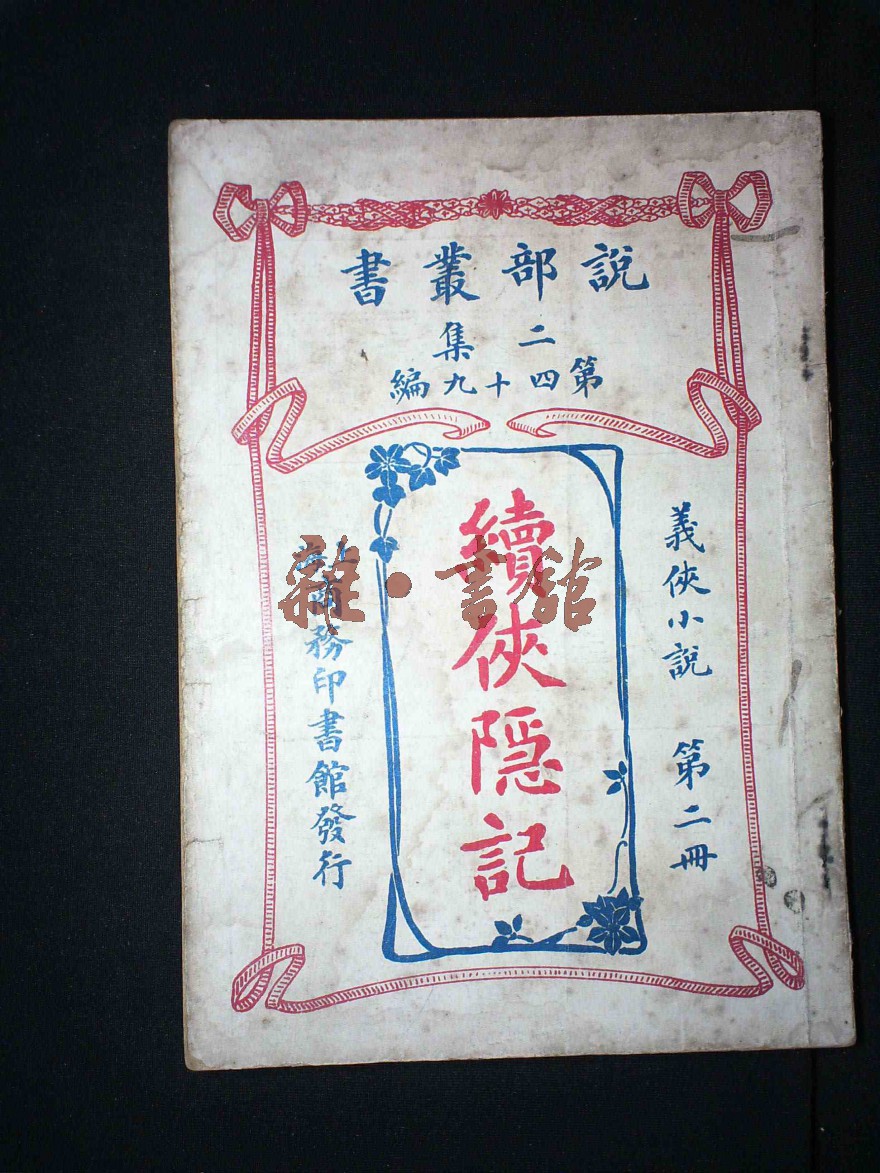 說部叢書
二集
第四十九編
義俠小說 第二冊
續俠隱記
上海商務印書館發行
雜·書館